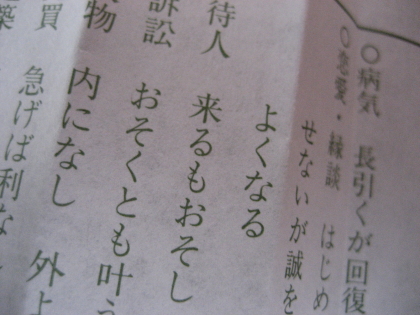 〇病気 長引くが回復
〇恋愛・縁談 はじめ
せないが誠を
よくなる
待人 来るもおそし
訴訟 おそくとも叶う
物 内になし 外よ
買 急げば利な
築